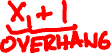 x₁ + 1
OVERHANG